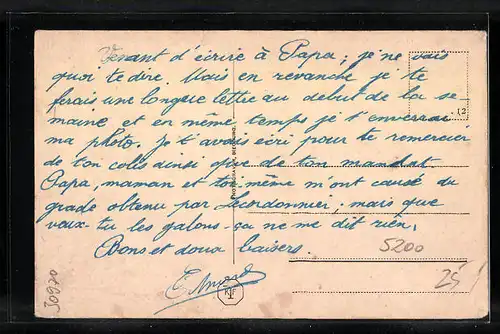 Venant d'écrire à Papa; je ne vois
quoi te dire. Mais en revanche je te
ferais une longue lettre au debut de la se
maine et en même temps je t'enverrai
ma photo. Je t'avais écri pour te remercier
de ton colis ainsi que de ton mandat
Papa, maman et toi même m'ont causé du
grade obtenu par Lecordonnier; mais que
vaux-tu les galons ça ne me dit rien,
Bons et doux baisers.
5200
25
30970